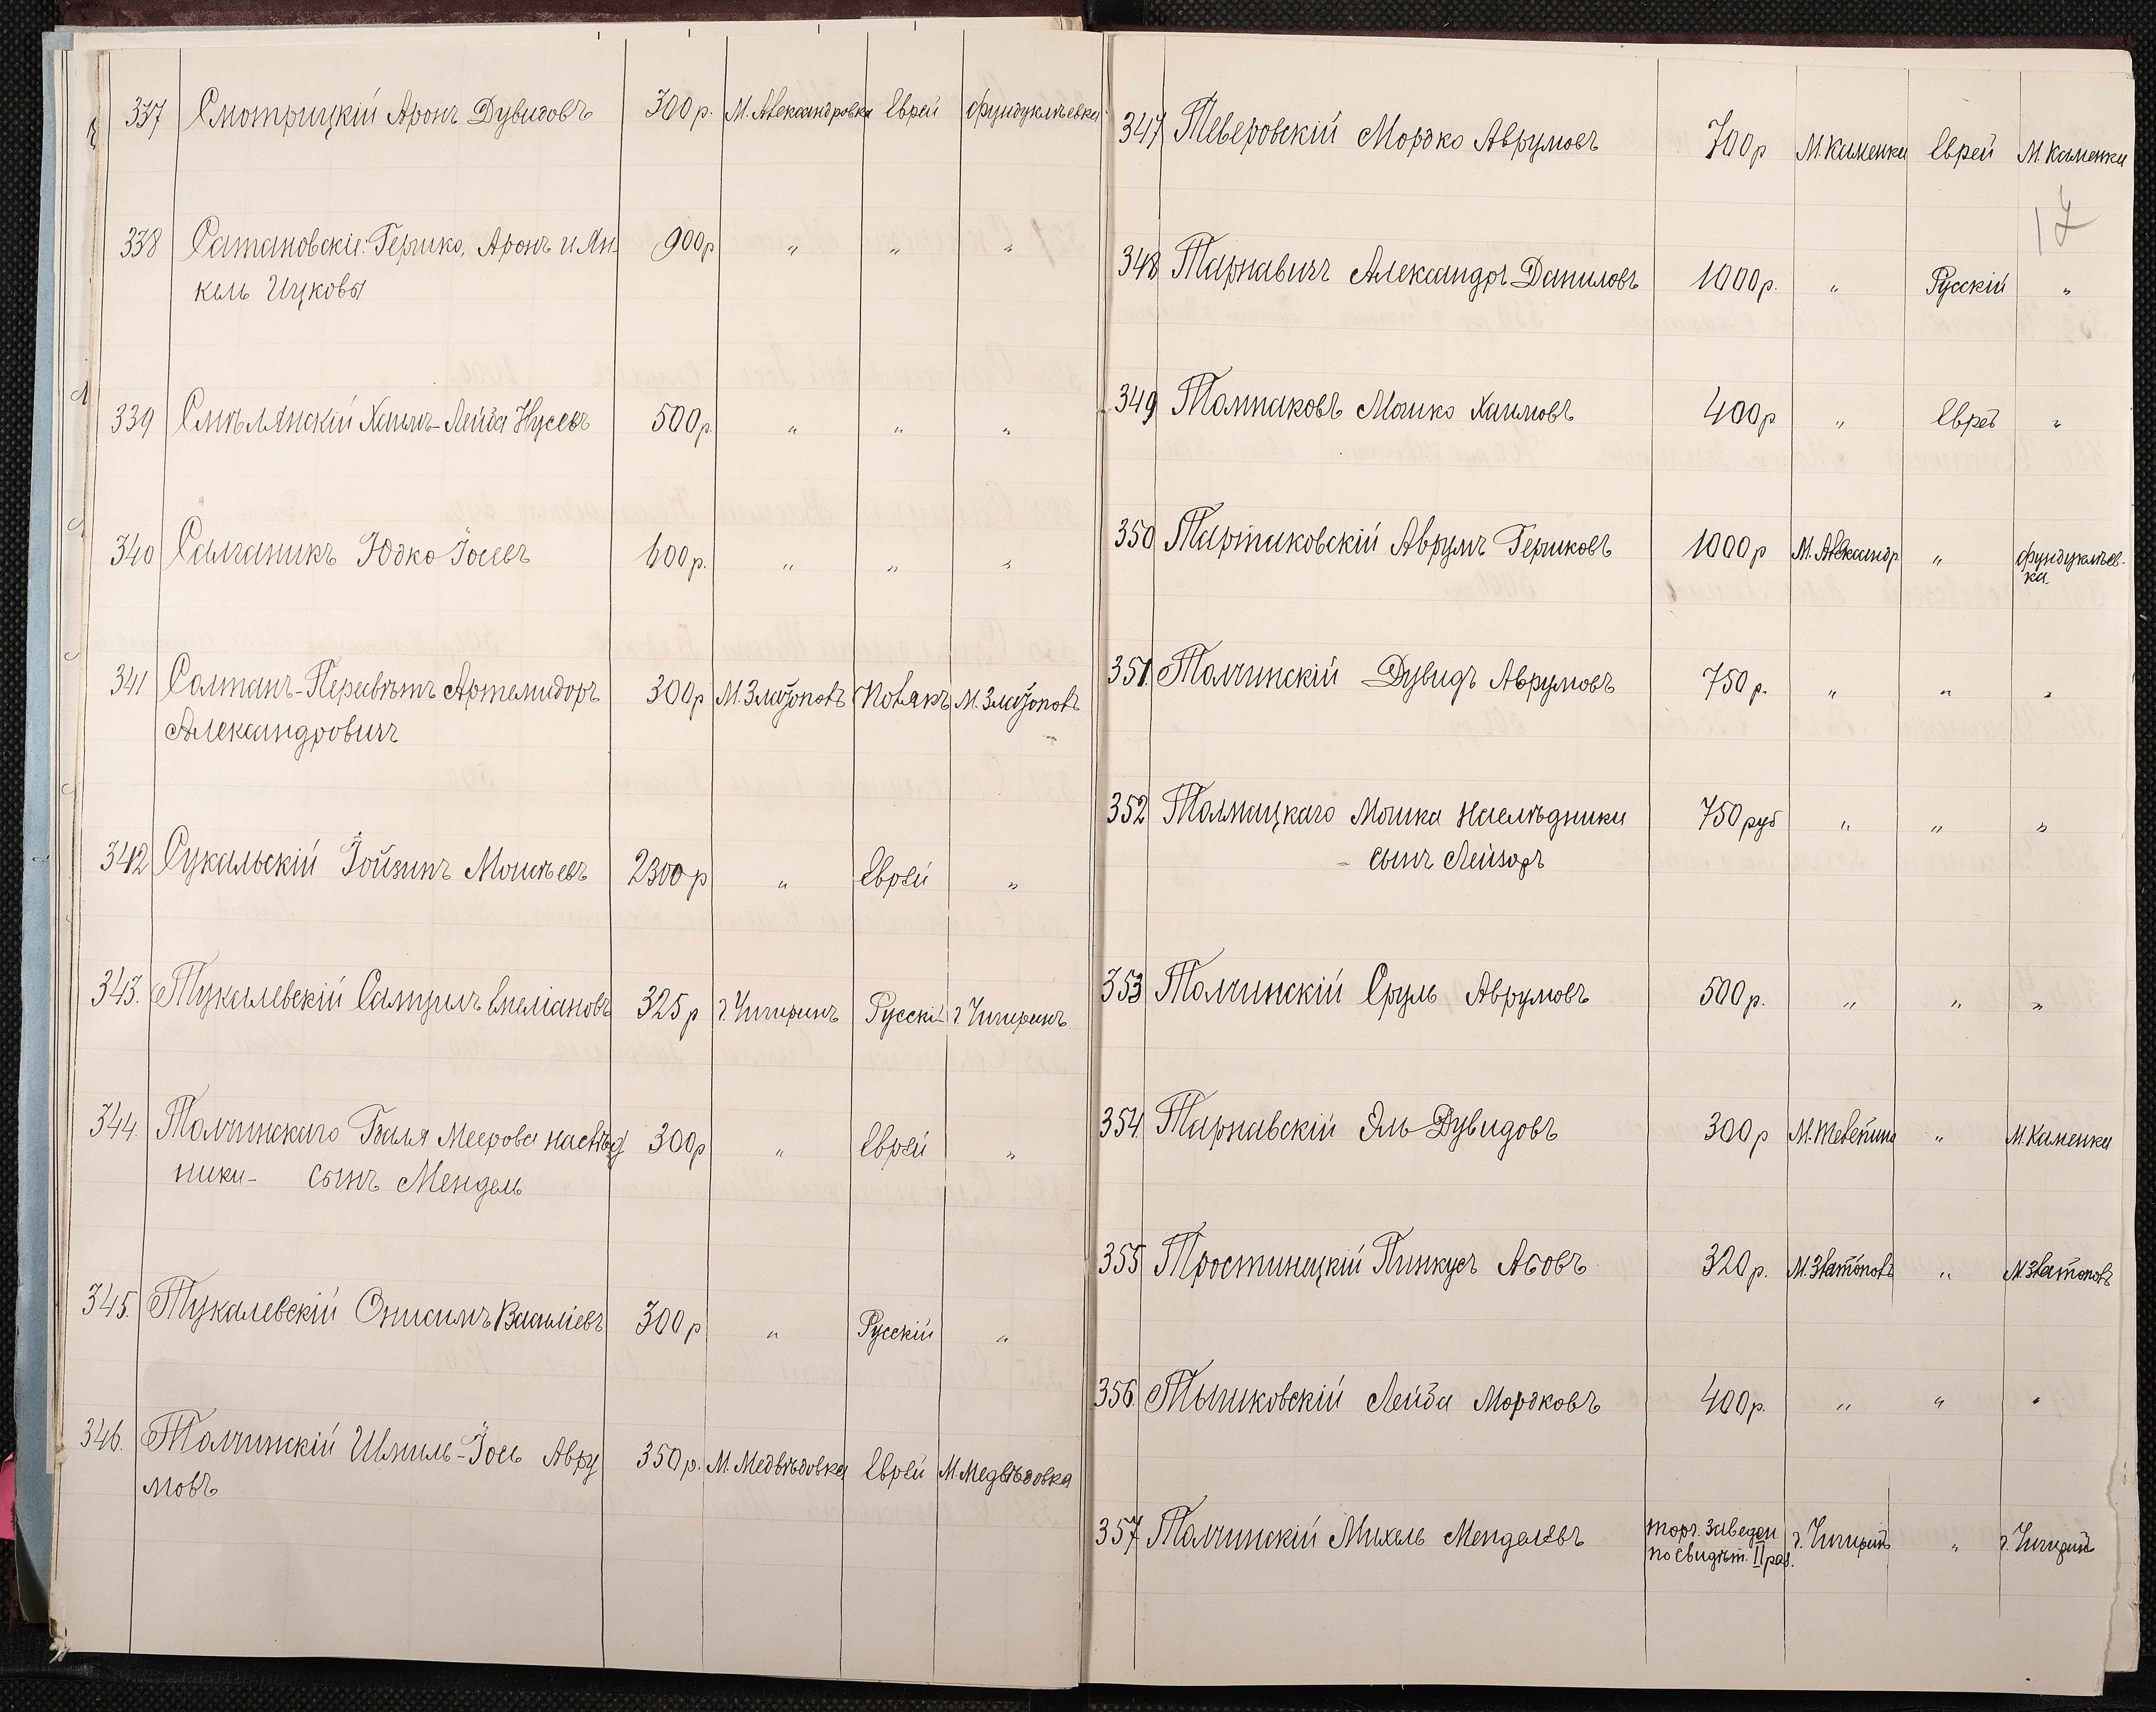 337 Смотрицкій Аронъ Дувидовъ 300 р. М. Александровка Еврей Фундуклѣевка
338 Сатановскіе: Гершко, Аронъ и Ян- 900 р " " "
кель Ицковы
339 Смѣлянскій Хаимъ-Лейба Нусевъ 500 р. " " "
340 Салганикъ Юдко Іосевъ 600 р. " " "
341 Солтанъ-Пересвѣтъ Артемидоръ 300 р М. Златополь Полякъ М. Златополь
Александровичъ
342 Сукальскій Іойзипъ Мошкевъ 2300 р " Еврей "
343. Тукалевскій Самуилъ Емеліановъ 325 р г. Чигиринъ Русскій г. Чигиринъ
344. Толчинскаго Баля Меерова наслѣд 300 р " Еврей "
ники - сынъ Мендель
345. Тукалевскій Онисимъ Василіевъ 300 р " Русскій "
346. Толчинскій Шмиль-Іось Авру 350 р. М. Медвѣдовка Еврей М. Медвѣдовка
мовъ
347 Тверовскій Мордко Аврумовъ 700 р М. Каменка Еврей М. Каменка
17
348 Тарнавичъ Александръ Даниловъ 1000 р. " Русскій "
349 Толпаковъ Мошко Хаимовъ 400 р. " Еврей "
350 Тартаковскій Аврумъ Гершковъ 1000 р М. Александр. " Фундуклѣев-
ка
351. Толчинскій Дувидъ Аврумовъ 750 р. " " "
352 Толмацкаго Мошка Наслѣдники 750 руб " " "
- сынъ Лейзоръ
353 Толчинскій Сруль Аврумовъ 500 р. " " "
354. Тарнавскій Эль Дувидовъ 300 р М. Телепина " М. Каменка
355 Тростинецкій Пинкусъ Абовъ 320 р. М. Златополь " М. Златополь
356. Тышковскій Лейба Мордковъ 400 р. " " "
357 Толчинскій Михель Менделевъ торг. заведен. г. Чигирин " г. Чигирин
по свидѣт. II раз.